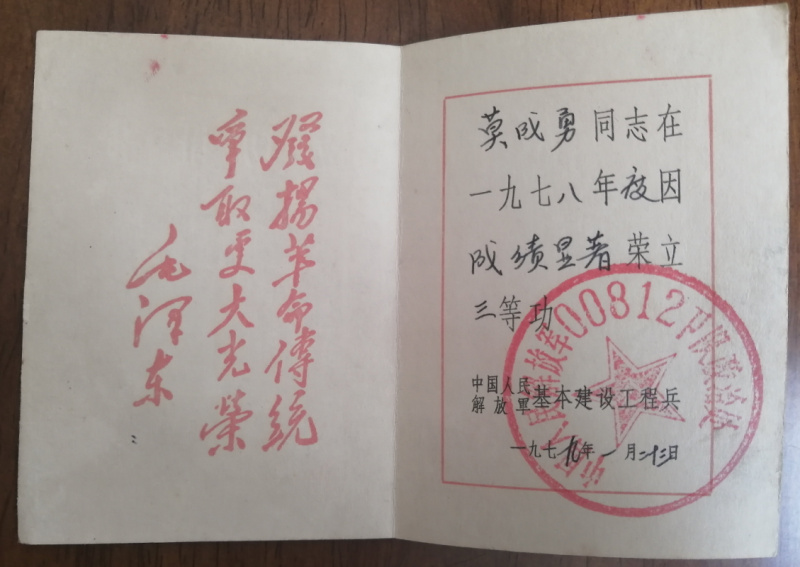 發揚革命傳統
爭取更大光榮
毛澤东
莫成勇同志在
一九七八年度因
成绩显著荣立
三等功
中国人民
解放軍基本建设工程兵
一九七九年一月二十三日
中国人民解放军00812部队政治处